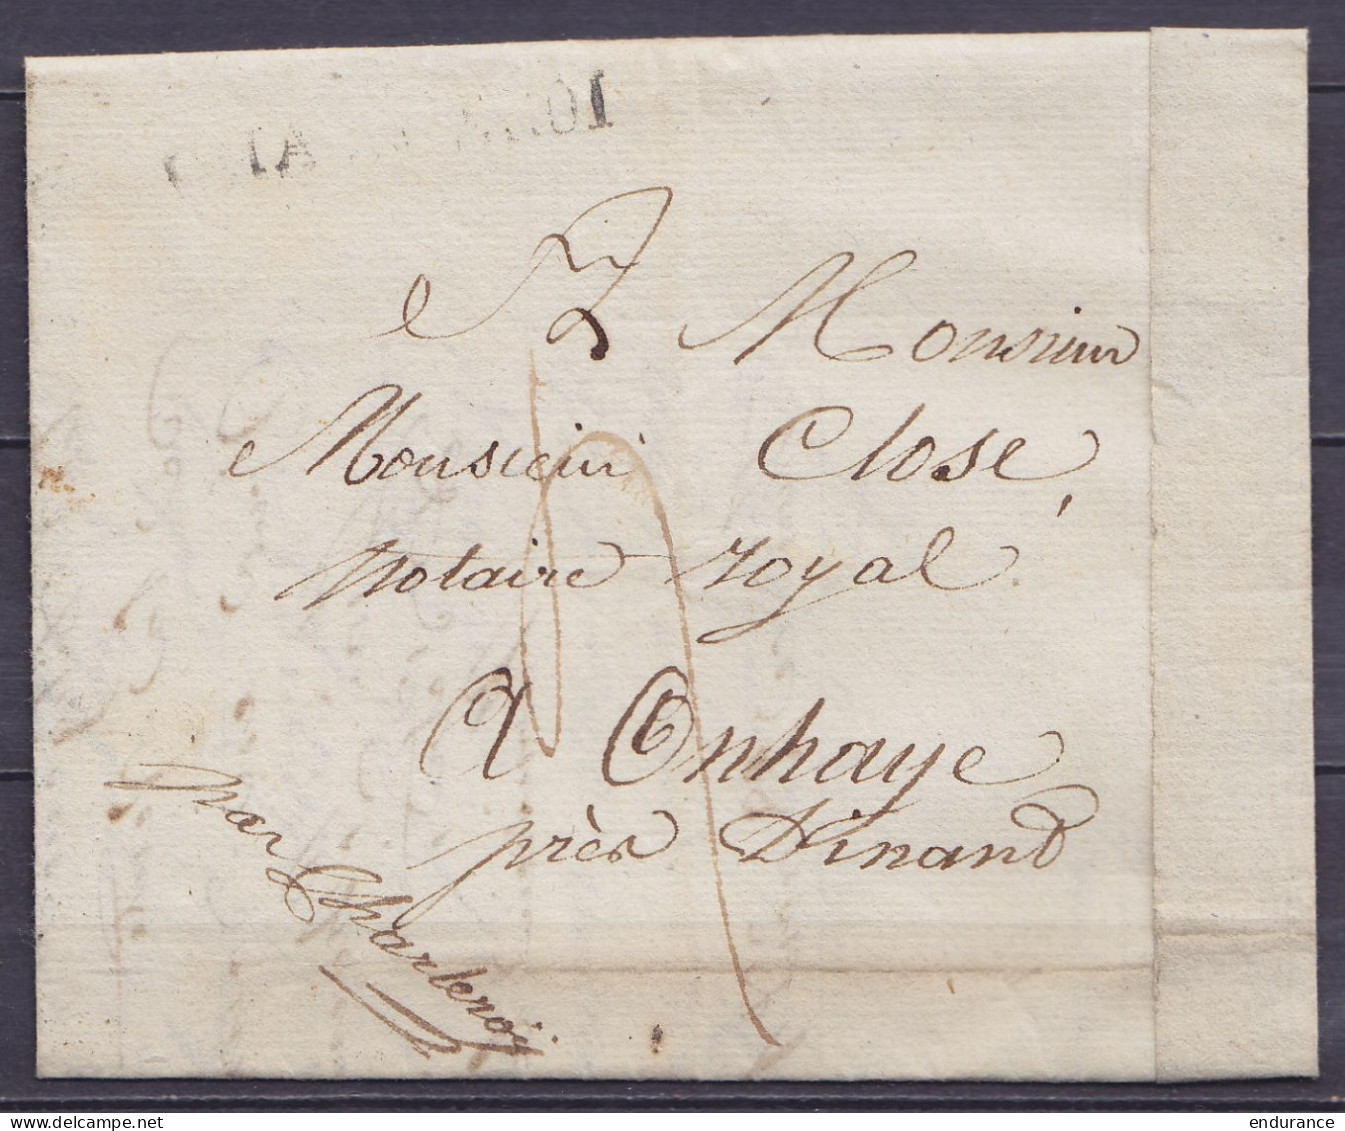 CHARLEROI
A Monsieur
Monsieur Closé,
notaire royal
à Onhaye
près Dinand
par Charleroij
delcampe.net
endurance